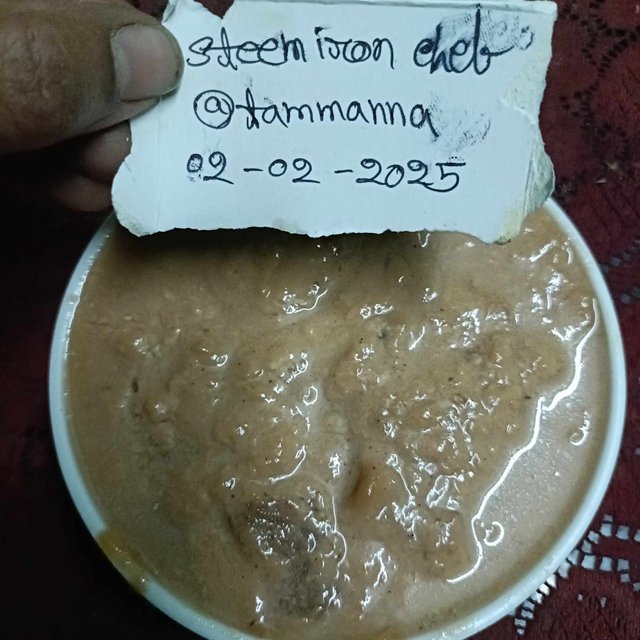 steem iron cheb
@tammanna
02-02-2025